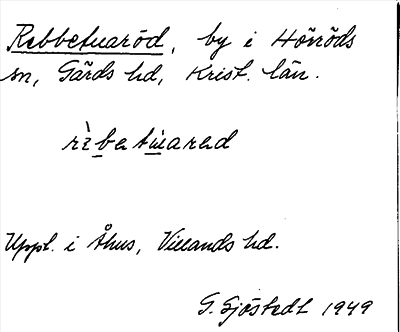 Rebbetuaröd, by i Hörröds
sn, Gärds hd, Krist. län.
Uppl. i Åhus, Villands hd.
G. Sjöstedt 1949